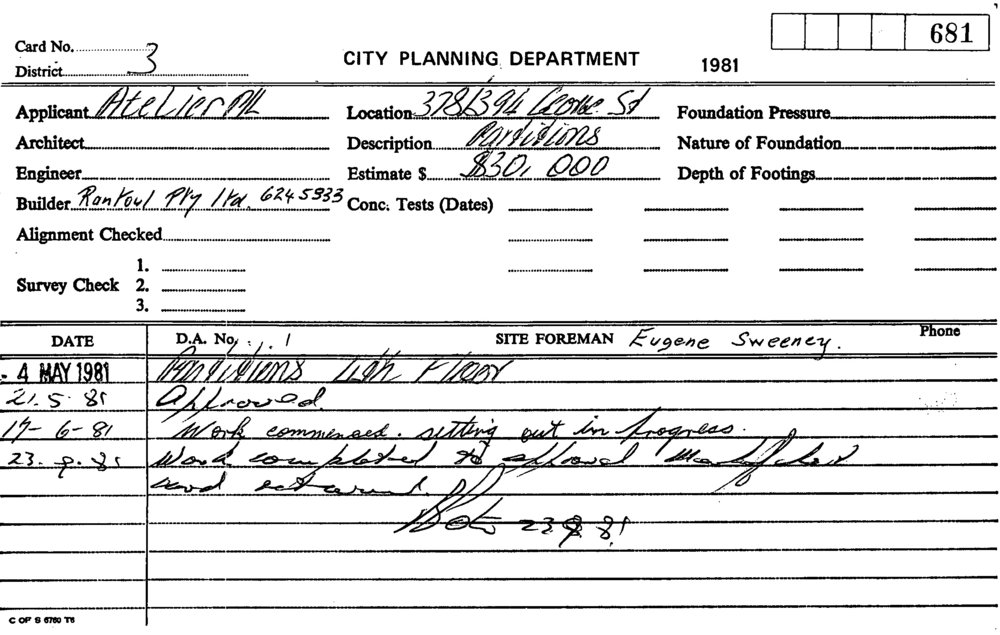 681
Card No.
District 3
CITY PLANNING DEPARTMENT 1981
Applicant Atelier
Location 378/394 George St
Foundation Pressure
Architect
Description Partitions
Nature of Foundation
Engineer
Estimate $ $30,000
Depth of Footings
Builder Pty Ltd. 6245933
Conc. Tests (Dates)
Alignment Checked
Survey Check
1.
2.
3.
DATE D.A. No. SITE FOREMAN Eugene Sweeney. Phone
- 4 MAY 1981 Partitions Floor
21.5.81 Approved.
17-6-81 Work commenced. setting out in progress.
23.9.81 Work completed to approval
and
23.9.81
C OF S 6760 T6